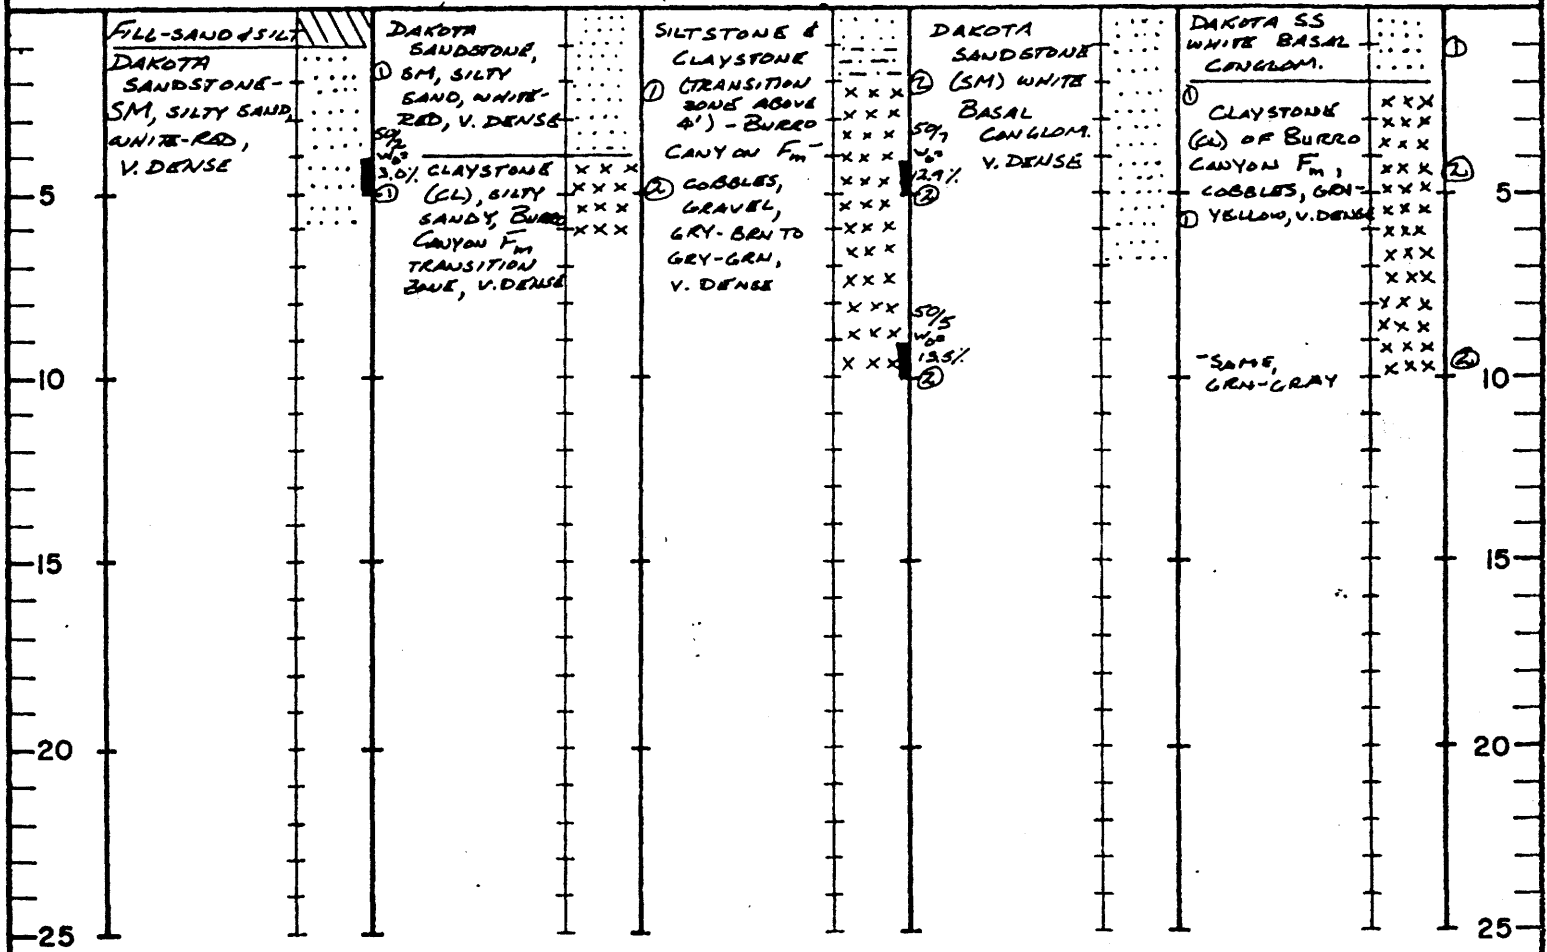 FILL-SAND & SILT
DAKOTA
SANDSTONE-
SM, SILTY SAND,
WHITE-RED,
V. DENSE
50/2
W₀=
3.0%
①
DAKOTA
SANDSTONE,
① SM, SILTY
SAND, WHITE-
RED, V. DENSE
CLAYSTONE
(CL), SILTY
SANDY, BURRO
CANYON Fm
TRANSITION
ZONE, V. DENSE
SILTSTONE &
CLAYSTONE
① (TRANSITION
ZONE ABOVE
4') - BURRO
CANYON Fm-
② COBBLES,
GRAVEL,
GRY-BRN TO
GRY-GRN,
V. DENSE
50/7
W₀=
12.9%
②
50/5
W₀=
②
DAKOTA
SANDSTONE
② (SM) WHITE
BASAL
CONGLOM.
V. DENSE
①
①
DAKOTA SS
WHITE BASAL
CONGLOM.
CLAYSTONE
(CL) OF BURRO
CANYON Fm,
COBBLES,
YELLOW, V. DENSE
-SAME,
GRN-GRAY
①
②
②
5
10
15
20
25
5
10
15
20
25